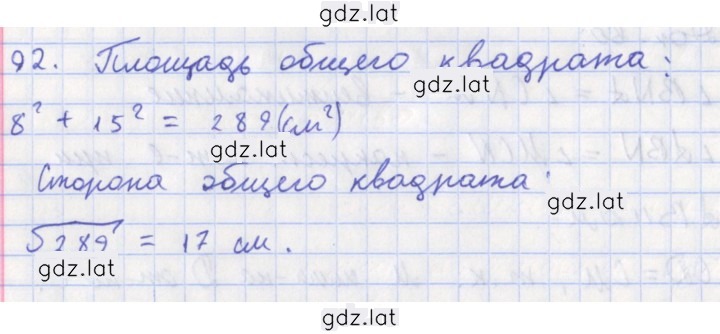 gdz.lat
92. Площадь общего квадрата:
gdz.lat
8² + 15² = 289 (см²)
gdz.lat
Сторона общего квадрата:
gdz.lat
√289 = 17 см.
gdz.lat
gdz.lat